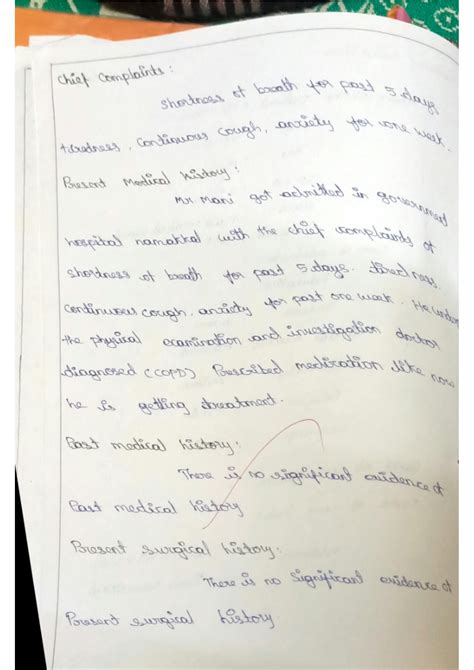 Chief Complaints :
Shortness of breath for past 5 days
tiredness, Continuous cough, anxiety for one week.
Present Medical history :
Mr Mani got admitted in government
hospital namakkal with the chief complaints of
shortness of breath for past 5 days. tiredness.
Continuous cough, anxiety for past one week. He under
the physical examination and investigation doctor
diagnosed (COPD) Prescribed medication like now
he is getting treatment.
Past medical history :
There is no significant evidence of
Past medical history
Present surgical history :
There is no significant evidence of
Present surgical history